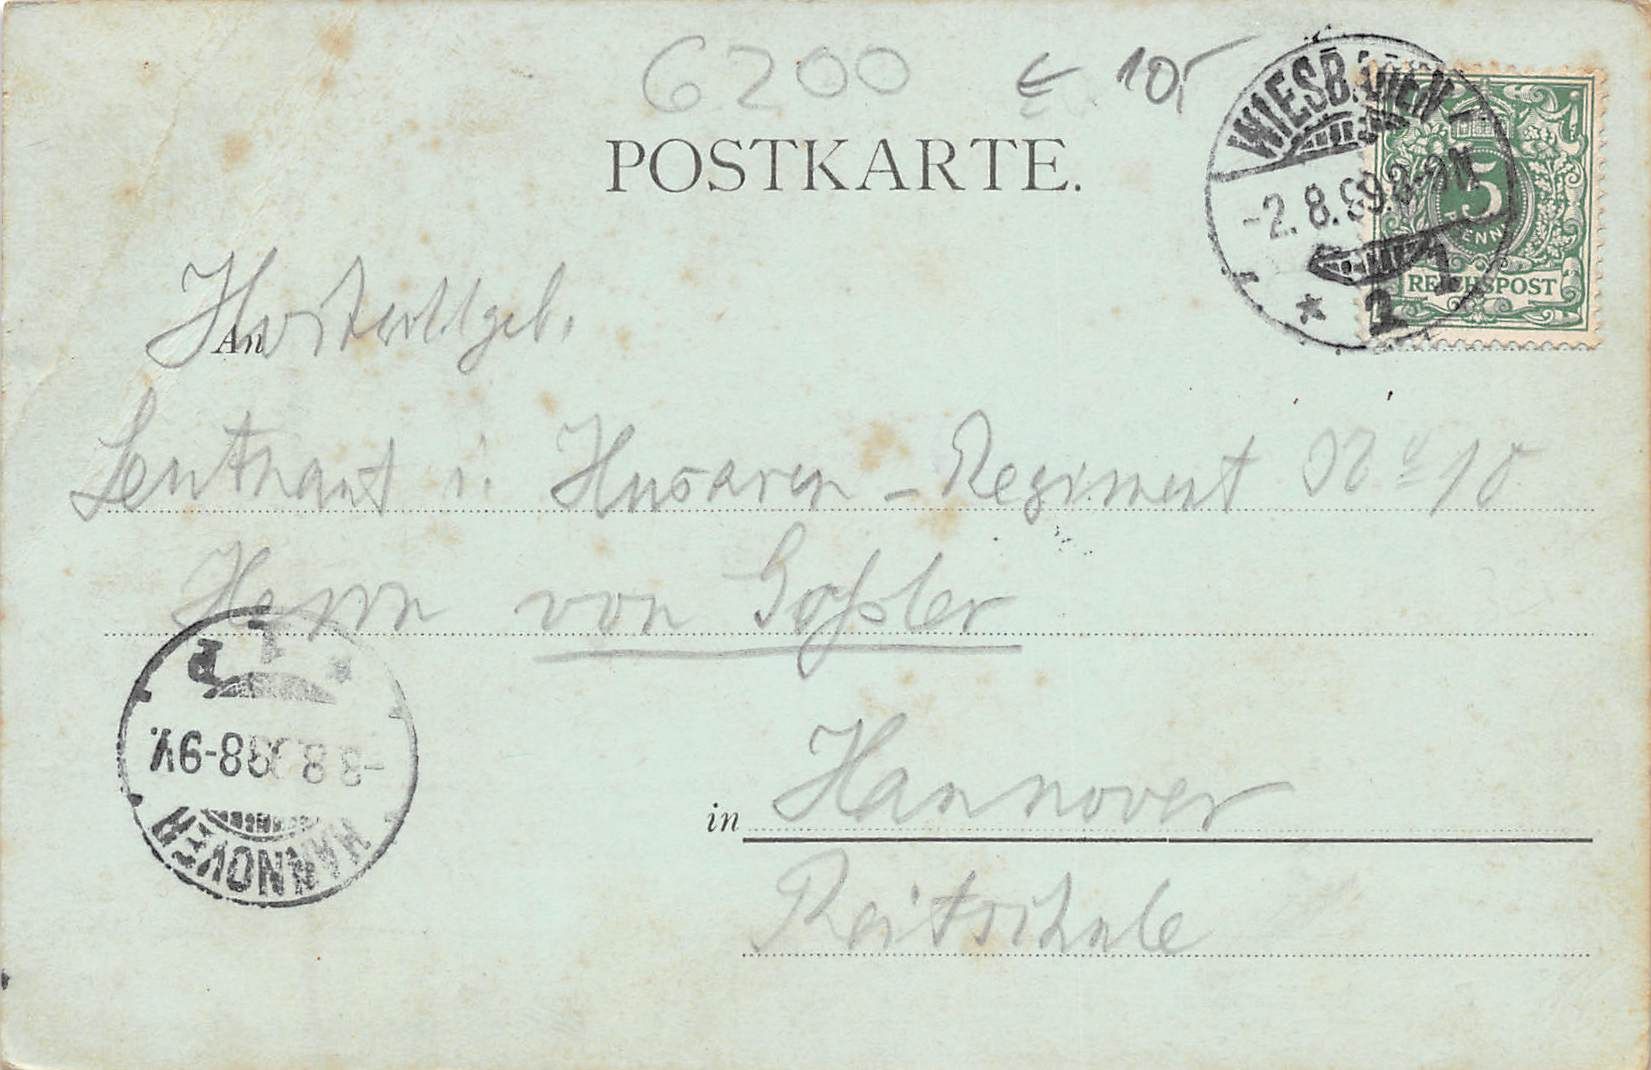 6200 € 10,-
POSTKARTE.
WIESBADEN
-2.8.99. 8-9N
* 2
5
PFENNIG
REICHSPOST
An
Leutnant i. Husaren-Regiment No 10
Herrn von Goßler
in Hannover
Reitschule
HANNOVER
-3.8.99 8-9V.
1 P *